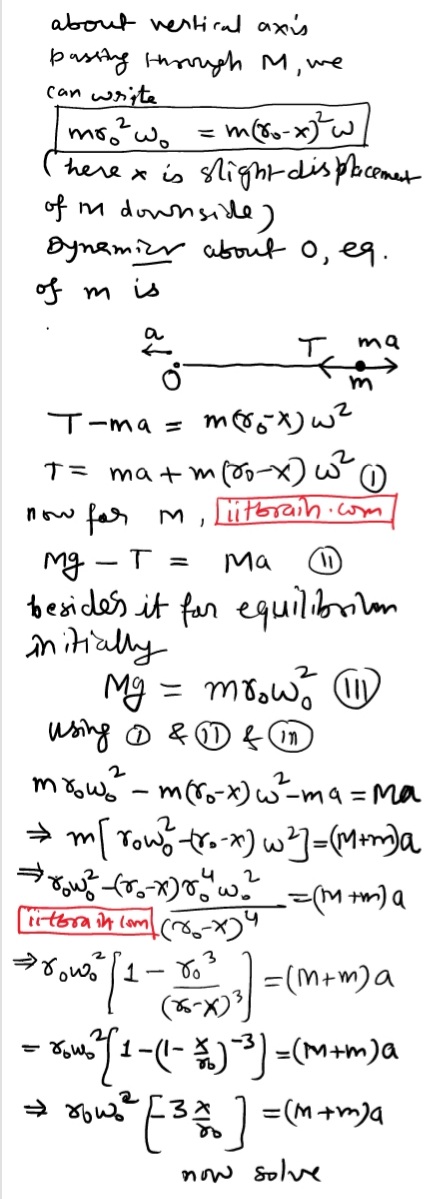 about vertical axis
passing through M, we
can write
mr₀²ω₀ = m(r₀-x)²ω
(here x is slight displacement
of M downside)
Dynamics about O, eq.
of m is
a T ma
O m
T-ma = m(r₀-x)ω²
T = ma + m(r₀-x)ω² (I)
now for M, iitbrain.com
Mg - T = Ma (II)
besides it for equilibrium
initially
Mg = mr₀ω₀² (III)
using (I) & (II) & (III)
mr₀ω₀² - m(r₀-x)ω² - ma = Ma
⇒ m[r₀ω₀² - (r₀-x)ω²] = (M+m)a
⇒ r₀ω₀² - (r₀-x)r₀⁴ω₀² / (r₀-x)⁴ = (M+m)a
iitbrain.com
⇒ r₀ω₀² [1 - r₀³/(r₀-x)³] = (M+m)a
= r₀ω₀² [1-(1-x/r₀)⁻³] = (M+m)a
⇒ r₀ω₀² [-3x/r₀] = (M+m)a
now solve